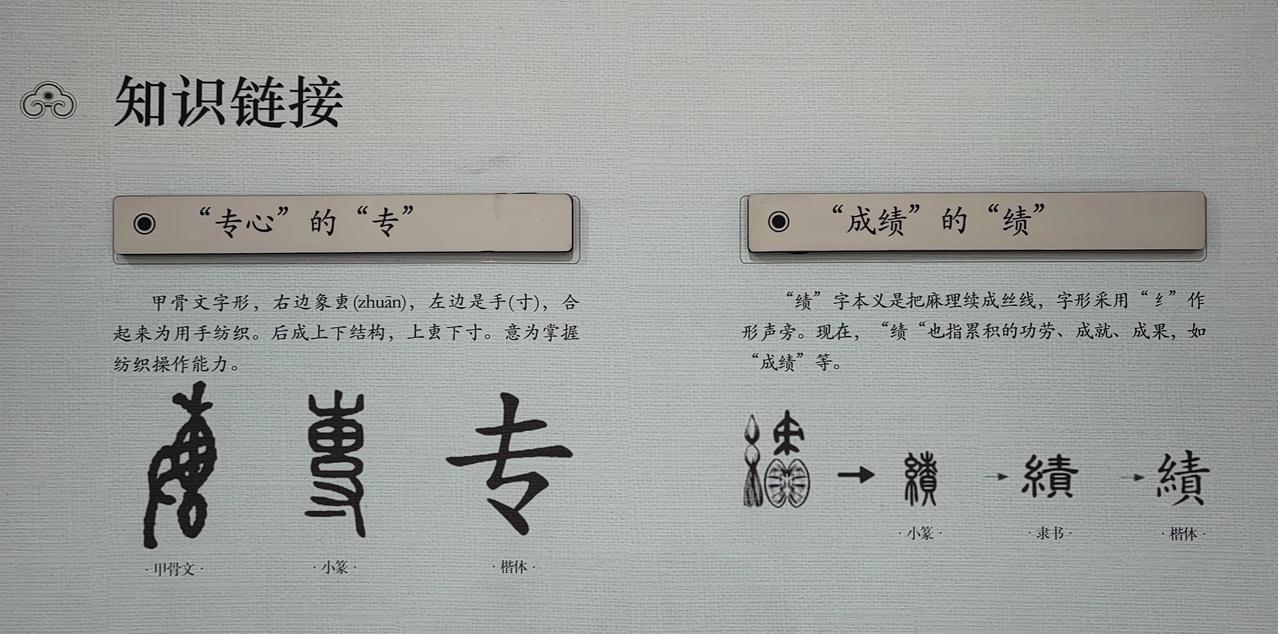 知识链接
“专心”的“专”
甲骨文字形，右边象叀(zhuān)，左边是手(寸)，合
起来为用手纺织。后成上下结构，上叀下寸。意为掌握
纺织操作能力。
甲骨文
·小篆·
·楷体·
“成绩”的“绩”
“绩”字本义是把麻理续成丝线，字形采用“纟”作
形声旁。现在，“绩“也指累积的功劳、成就、成果，如
“成绩”等。
專
专
績
績
績
·小篆·
·隶书·
·楷体·